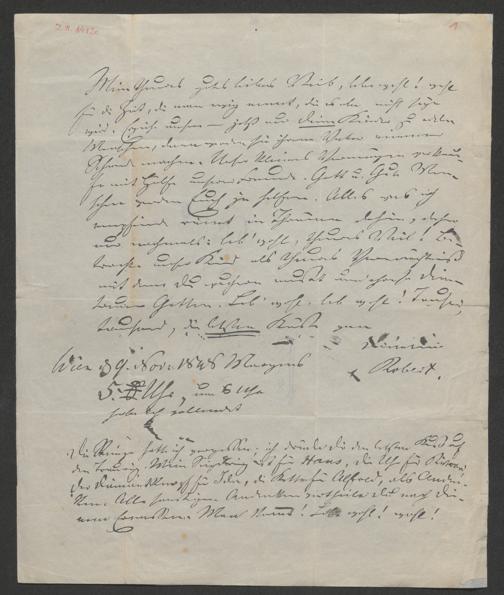 Z. N. 1
Mein theures gutes liebes Weib, lebe wohl! wohl
für die Zeit, die man ewig nennt, die es aber nicht sein
wird. Erziehe unsere – jetzt nur deine Kinder zu edlen
Menschen, dann werden sie ihrem Vater nimmer
Schande machen. Unser kleines Vermögen verkau-
fe mit Hülfe unserer Freunde. Gott u. gute Men-
schen werden Euch ja helfen. Alles was ich
empfinde rinnt in Thränen dahin, daher
nur nochmals: leb' wohl, theures Weib! Be-
trachte unsere Kinder als theures Vermächtniß
mit dem Du wuchern mußt und ehre deinen
treuen Gatten. Leb' wohl, leb wohl! Tausend,
tausend, die letzten Küsse von
Deinem
Wien d 9. Nov. 1848 Morgens
Robert.
5 Uhr, um 6 Uhr
habe ich vollendet
Die Ringe hatte ich vergessen; ich drücke dir den letzten Kuß auf
den Trauring. Mein Siegelring ist für Hans, die Uhr für Richard,
der Diamantknopf für Ida, die Kette für Alfred, als Anden-
ken. Alle sonstigen Andenken vertheile du nach dei-
nem Ermessen. Man kommt! Lebe wohl! wohl!